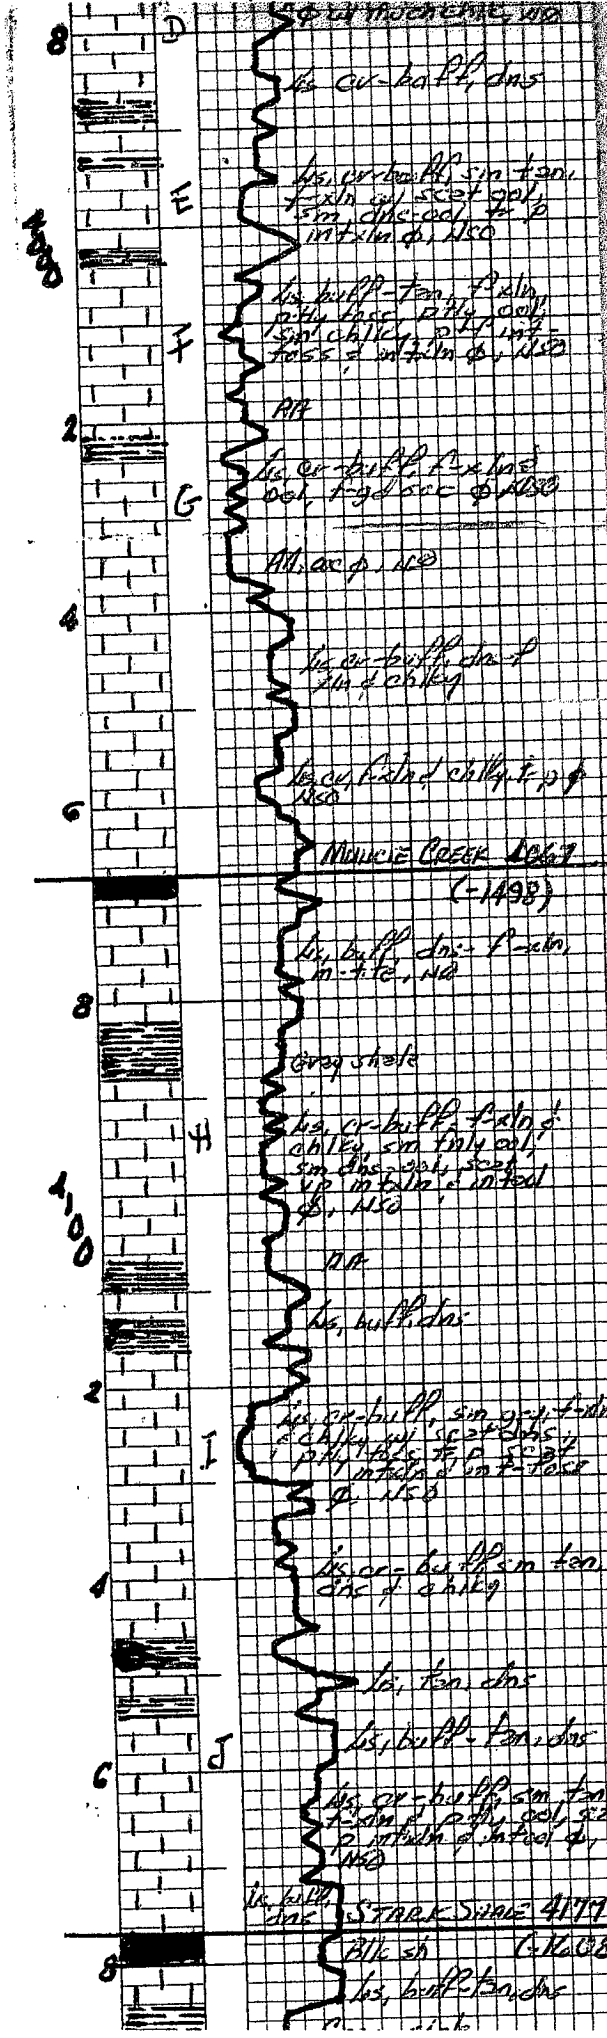 8
D
Ls cr-buff, dns
E
Ls, cr-buff, sm tan,
f-xln w/ scat ool,
sm, dns-ool, fr p
intxln φ, NSO
Ls, buff-tan, f xln,
ptly foss, ptly ool,
sm chlky, p-f int-
foss & intxln φ, NSO
F
AA
2
Ls, cr-buff, f-xln &
ool, f-gd occ φ, NSO
G
AA, occ φ, NSO
4
Ls, cr-buff, dns-f
xln & chlky
Ls, cr, f-xln & chlky, f-p φ
NSO
6
MUNCIE CREEK 4067
(-1498)
Ls, buff, dns-f-xln,
m-tite, NSO
8
Grey shale
H
Ls, cr-buff, f-xln &
chlky, sm fnly ool,
sm dns-ool, scat
vp intxln & intool
φ, NSO
4,100
AA
Ls, buff, dns
2
Ls, cr-buff, sm gry, f-xln
& chlky w/ scat dns,
ptly foss, p, scat
intxln & int-foss
φ, NSO
I
4
Ls, cr-buff, sm tan,
dns & chlky
Ls, tan, dns
J
Ls, buff-tan, dns
6
Ls, cr-buff, sm, tan
f-xln & ptly ool, sca
p intxln & intool φ,
NSO
Ls, buff,
dns
STARK SHALE 4177
Blk sh (-1608
8
Ls, buff-tan, dns